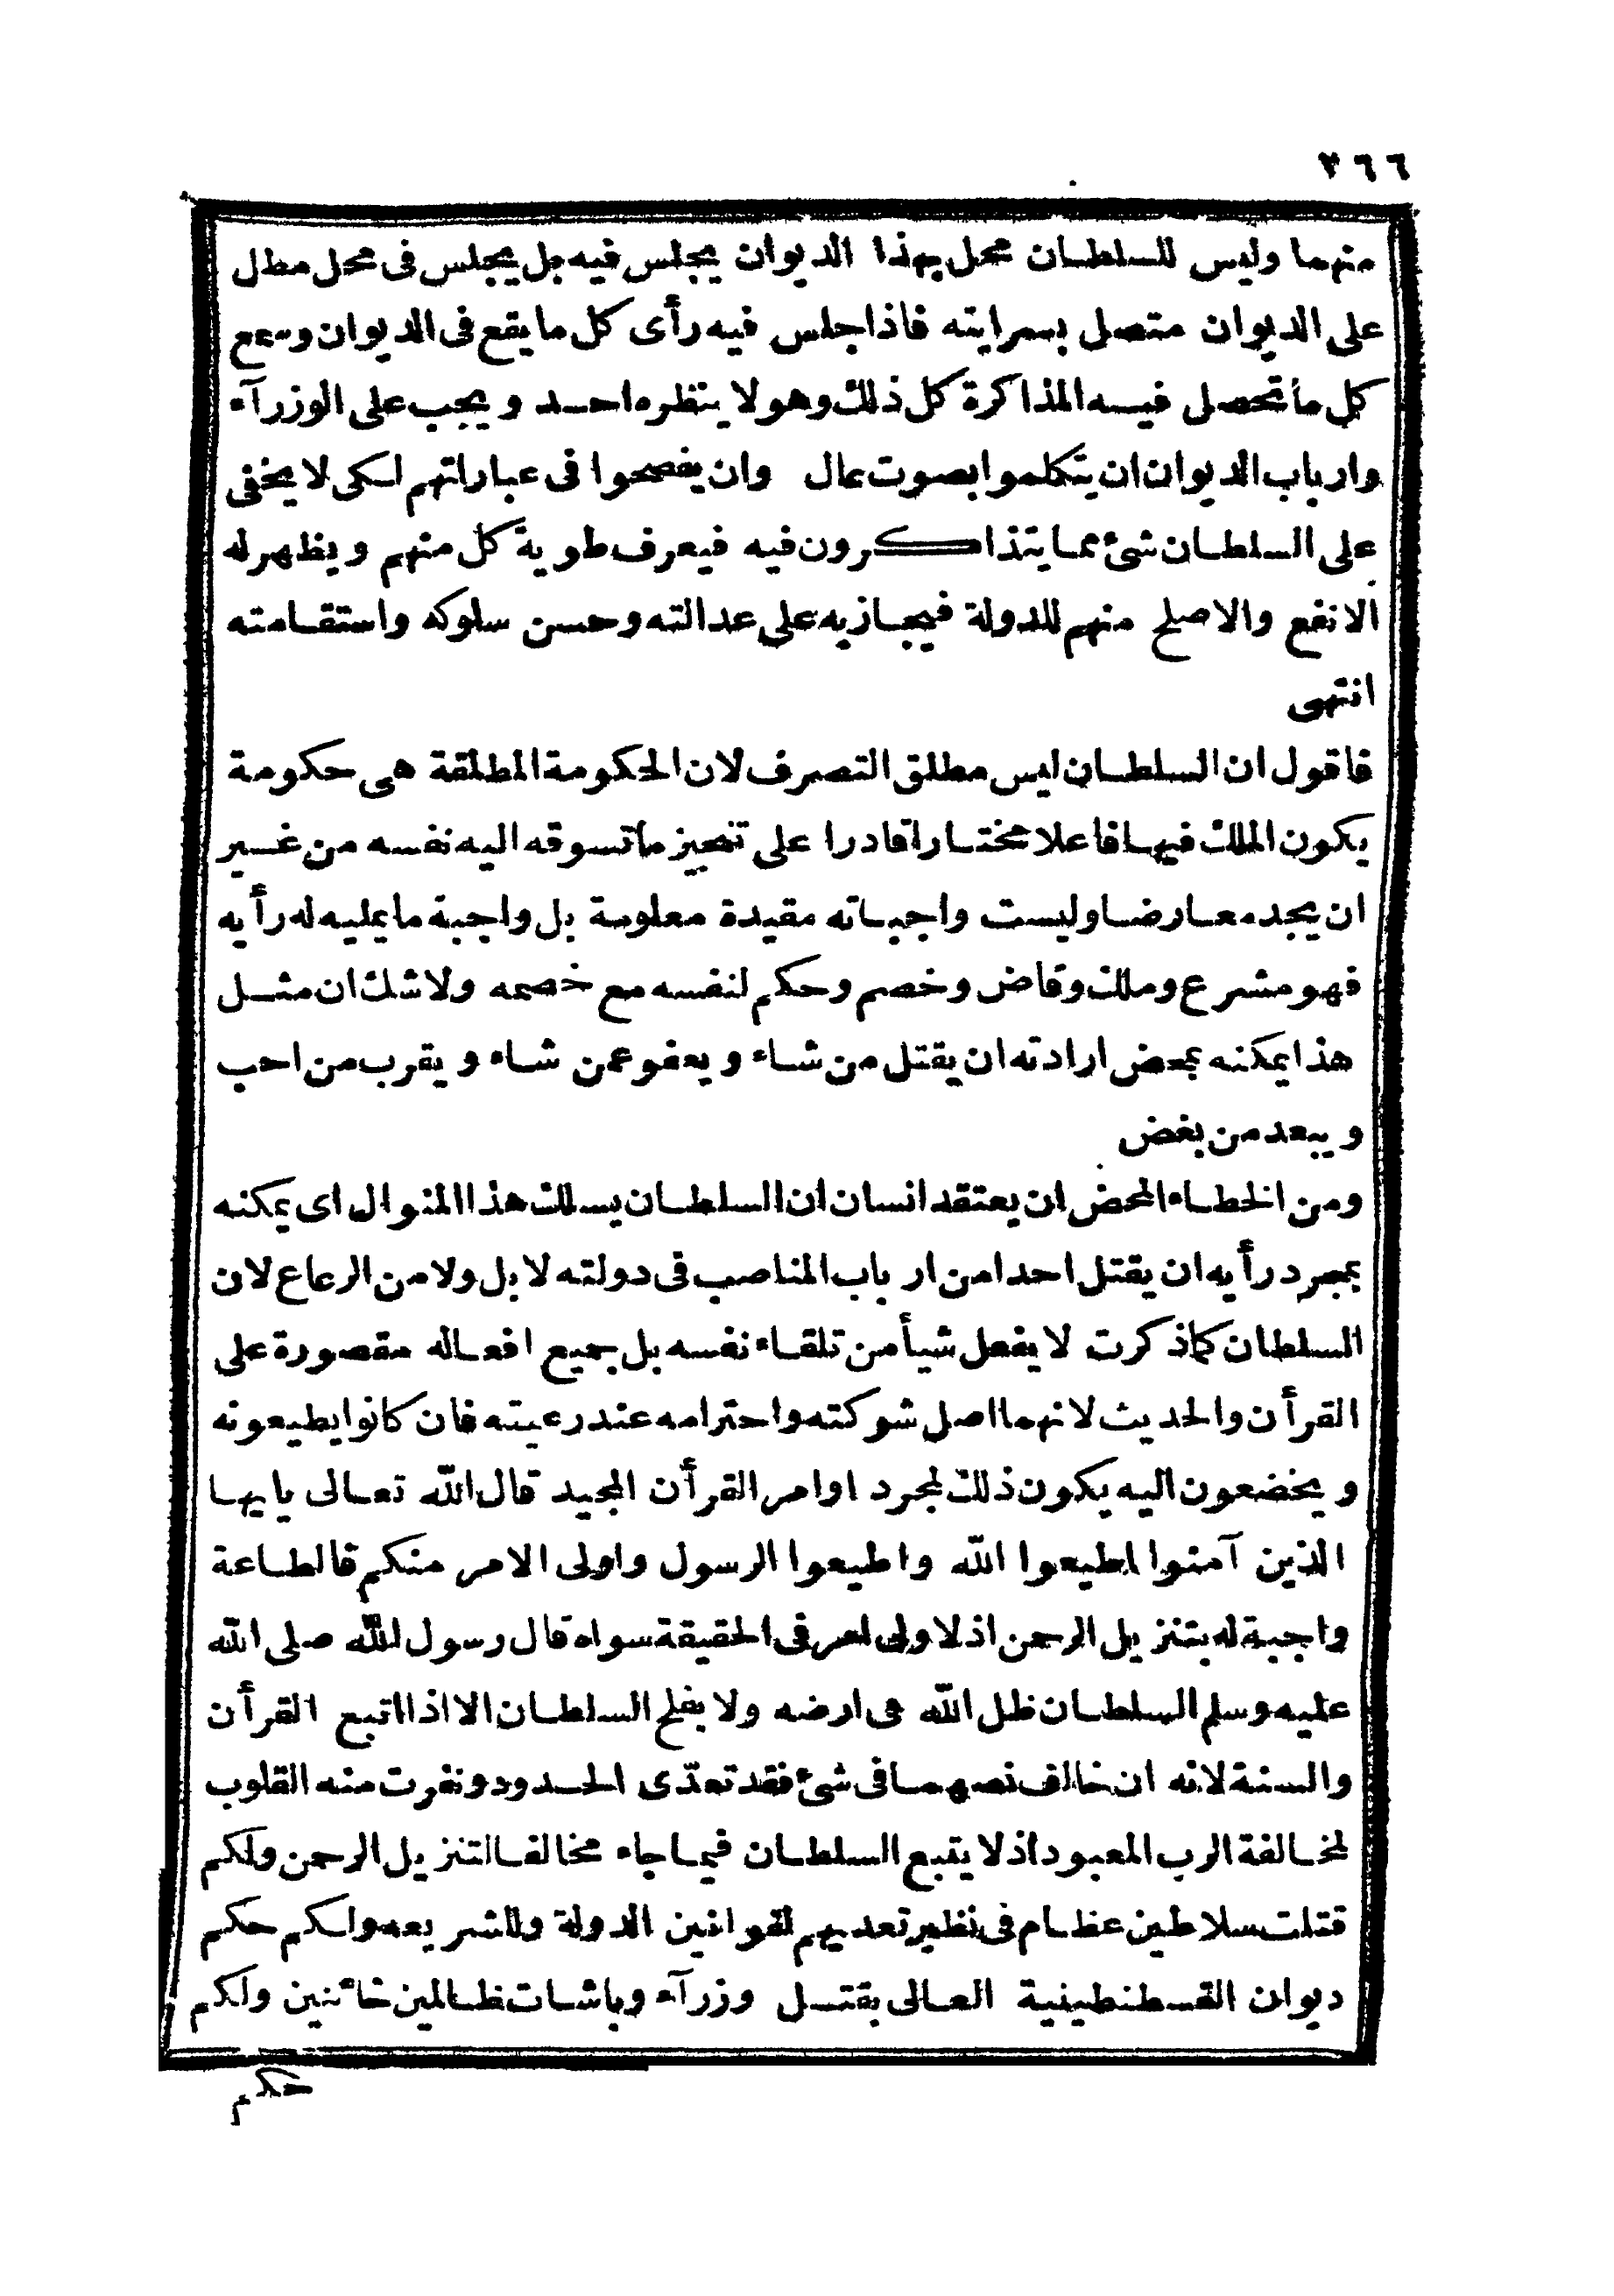 ٢٦٦
منهما وليس للسلطان محل بهذا الديوان يجلس فيه بل يجلس فى محل مطل
على الديوان متصل بسرايته فاذا جلس فيه رأى كل ما يقع فى الديوان وسمع
كل ما تحصل فيه المذاكرة كل ذلك وهو لا ينظره احد ويجب على الوزرآء
وارباب الديوان ان يتكلموا بصوت عال وان يفصحوا فى عباراتهم لكى لا يخفى
على السلطان شئ مما يتذاكرون فيه فيعرف طوية كل منهم ويظهر له
الانفع والاصلح منهم للدولة فيجازيه على عدالته وحسن سلوكه واستقامته
انتهى
فاقول ان السلطان ليس مطلق التصرف لان الحكومة المطلقة هى حكومة
يكون الملك فيها فاعلا مختارا قادرا على تنجيز ما تسوقه اليه نفسه من غير
ان يجد معارضا وليست واجباته مقيدة معلومة بل واجبة ما يمليه له رأيه
فهو مشرع وملك وقاض وخصم وحكم لنفسه مع خصمه ولا شك ان مثل
هذا يمكنه بمحض ارادته ان يقتل من شاء ويعفو عمن شاء ويقرب من احب
ويبعد من بغض
ومن الخطاء المحض ان يعتقد انسان ان السلطان يسلك هذا المنوال اى يمكنه
بمجرد رأيه ان يقتل احدا من ارباب المناصب فى دولته لا بل ولا من الرعاع لان
السلطان كما ذكرت لا يفعل شيأ من تلقاء نفسه بل جميع افعاله مقصورة على
القرأن والحديث لانهما اصل شوكته واحترامه عند رعيته فان كانوا يطيعونه
ويخضعون اليه يكون ذلك لمجرد اوامر القرأن المجيد قال الله تعالى يايها
الذين آمنوا اطيعوا الله واطيعوا الرسول واولى الامر منكم فالطاعة
واجبة له بتنزيل الرحمن اذ لا ولى امر فى الحقيقة سواه قال رسول الله صلى الله
عليه وسلم السلطان ظل الله فى ارضه ولا يفلح السلطان الا اذا اتبع القرأن
والسنة لانه ان خالف نصهما فى شئ فقد تعدّى الحدود ونفرت منه القلوب
لمخالفة الرب المعبود اذ لا يتبع السلطان فيما جاء مخالفا لتنزيل الرحمن ولكم
قتلت سلاطين عظام فى نظير تعديهم لقوانين الدولة وللشريعه ولكم حكم
ديوان القسطنطينية العالى بقتل وزرآء وباشات ظالمين خائنين ولكم
حكم